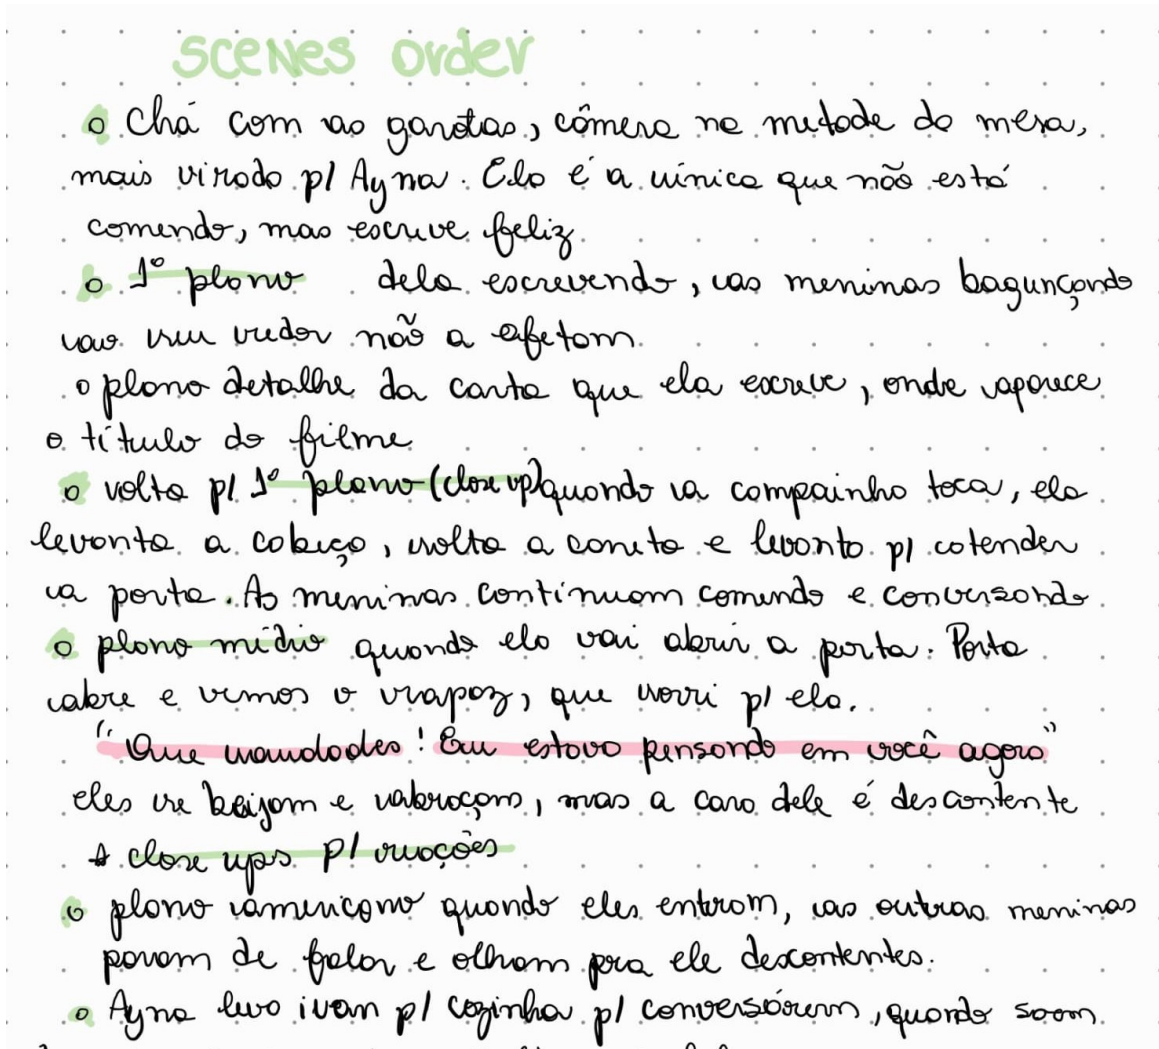 scenes order
o Chá com as garotas, câmera na metade da mesa,
mais virado p/ Ayna. Ela é a única que não está
comendo, mas escreve feliz
o 1º plano dela escrevendo, as meninas bagunçando
ao seu redor não a afetam
o plano detalhe da carta que ela escreve, onde aparece
o título do filme
o volta p/ 1º plano (close up) quando a campainha toca, ela
levanta a cabeça, solta a caneta e levanta p/ atender
a porta. As meninas continuam comendo e conversando
o plano médio quando ela vai abrir a porta. Porta
abre e vemos o rapaz, que sorri p/ ela.
"Que saudades! Eu estava pensando em você agora"
eles se beijam e abraçam, mas a cara dele é descontente
close ups p/ reações
o plano americano quando eles entram, as outras meninas
param de falar e olham pra ele descontentes.
o Ayna leva ivan p/ cozinha p/ conversarem, quando saem